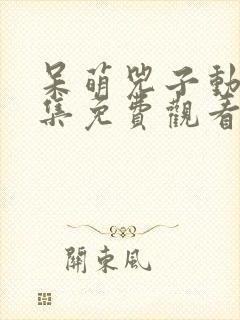 呆萌兇子動
集免費觀看
關東風